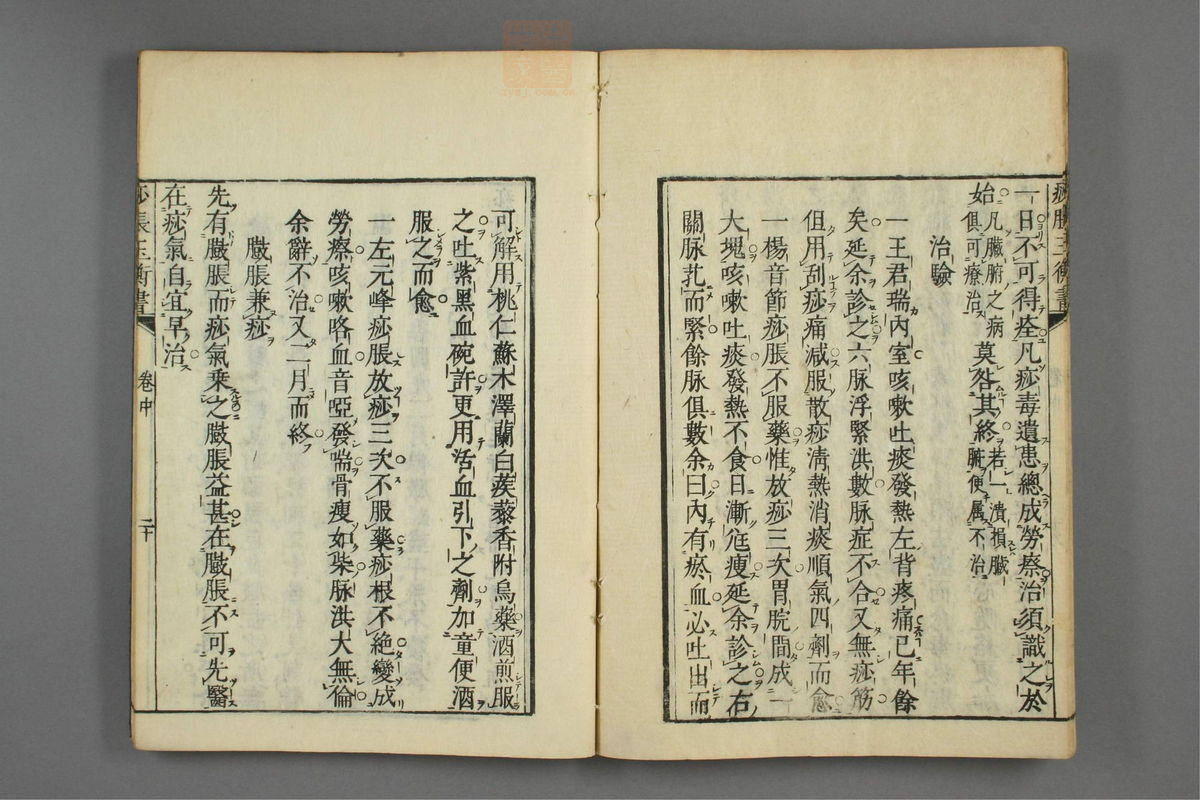 痧脹玉衡書
一日不可得痊凡痧毒遺患總成勞瘵治須識之於
始凡臟腑之病俱可療治莫咎其終若一潰損臟腑便属不治
治驗
一王君瑞内室咳嗽吐痰發熱左背疼痛已年餘
矣延余診之六脉浮緊洪數脉症不合又無痧筋
但用刮痧痛減服散痧淸熱消痰順氣四劑而愈
一楊音節痧脹不服藥惟放痧三次胃脘間成一
大塊咳嗽吐痰發熱不食日漸尩瘦延余診之右
關脉芤而緊餘脉俱數余曰内有瘀血必吐出而
可解用桃仁蘇木澤蘭白蒺藜香附烏藥酒煎服
之吐紫黑血碗許更用活血引下之劑加童便酒
服之而愈
一左元峰痧脹放痧三次不服藥痧根不絶變成
勞瘵咳嗽咯血音啞發喘骨瘦如柴脉洪大無倫
余辭不治又二月而終
臌脹兼痧
先有臌脹而痧氣乗之臌脹益甚在臌脹不可先醫
在痧氣自宜早治
痧脹玉衡書 卷中 二十